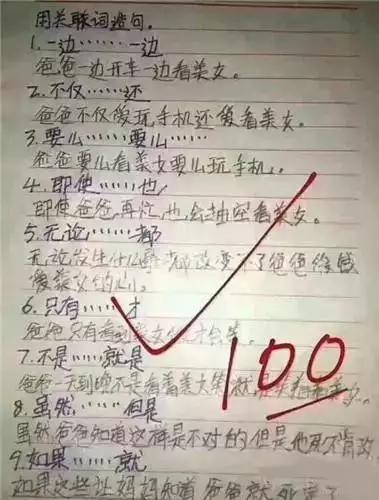 用关联词造句.
1.一边……一边
爸爸一边开车一边看美女。
2.不仅……还
爸爸不仅爱玩手机还爱看美女。
3.要么……要么……
爸爸要么看美女要么玩手机。
4.即使……也
即使爸爸再忙,也会抽空看美女。
5.无论……都
无论发生什么 都改变不了爸爸
爱美女的心。
6.只有……才
爸爸只有看到美女 才会笑。
7.不是……就是
爸爸一天到晚不是看着美女笑就是
8.虽然……但是
虽然爸爸知道这样是不对的但是他死不悔改
9.如果……就
如果这些让妈妈知道爸爸就死定了
100